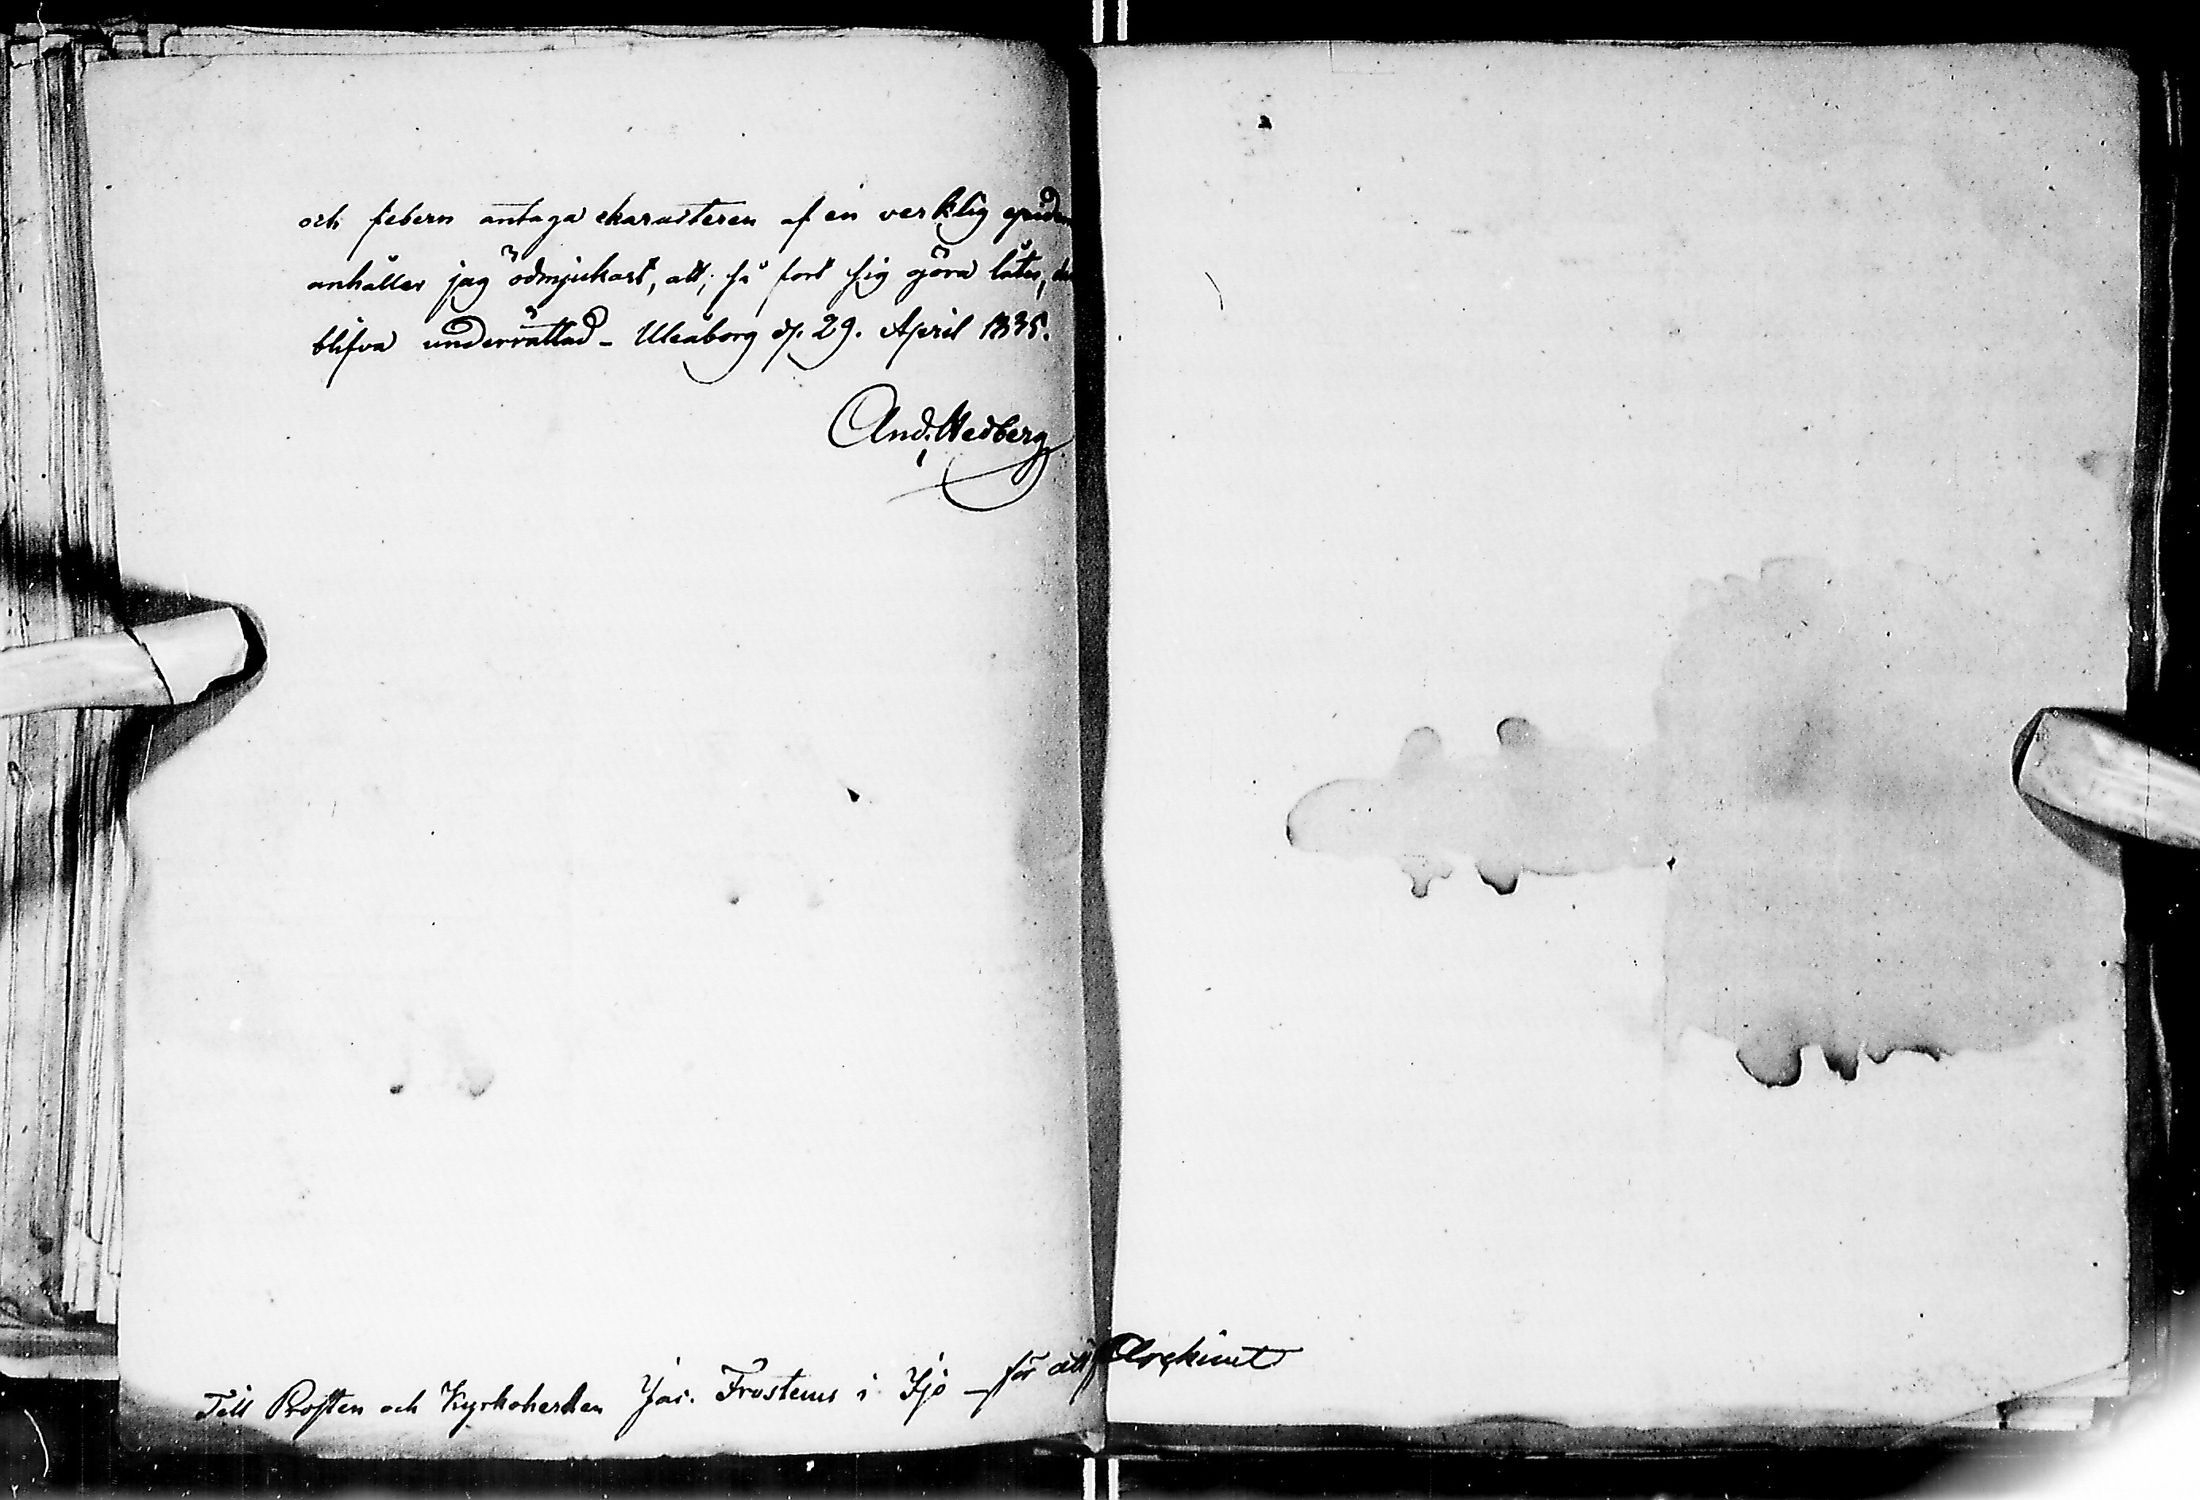 och febern antaga characteren af en verklig epidem
anhåller jag ödmjukast, att, så fort sig göra låter,
blifva underrättad - Uleåborg d. 29. April 1835.
And. Hedberg
Till Prosten och Kyrkoherden Jac. Frosterus i Ijo - för att Archivet